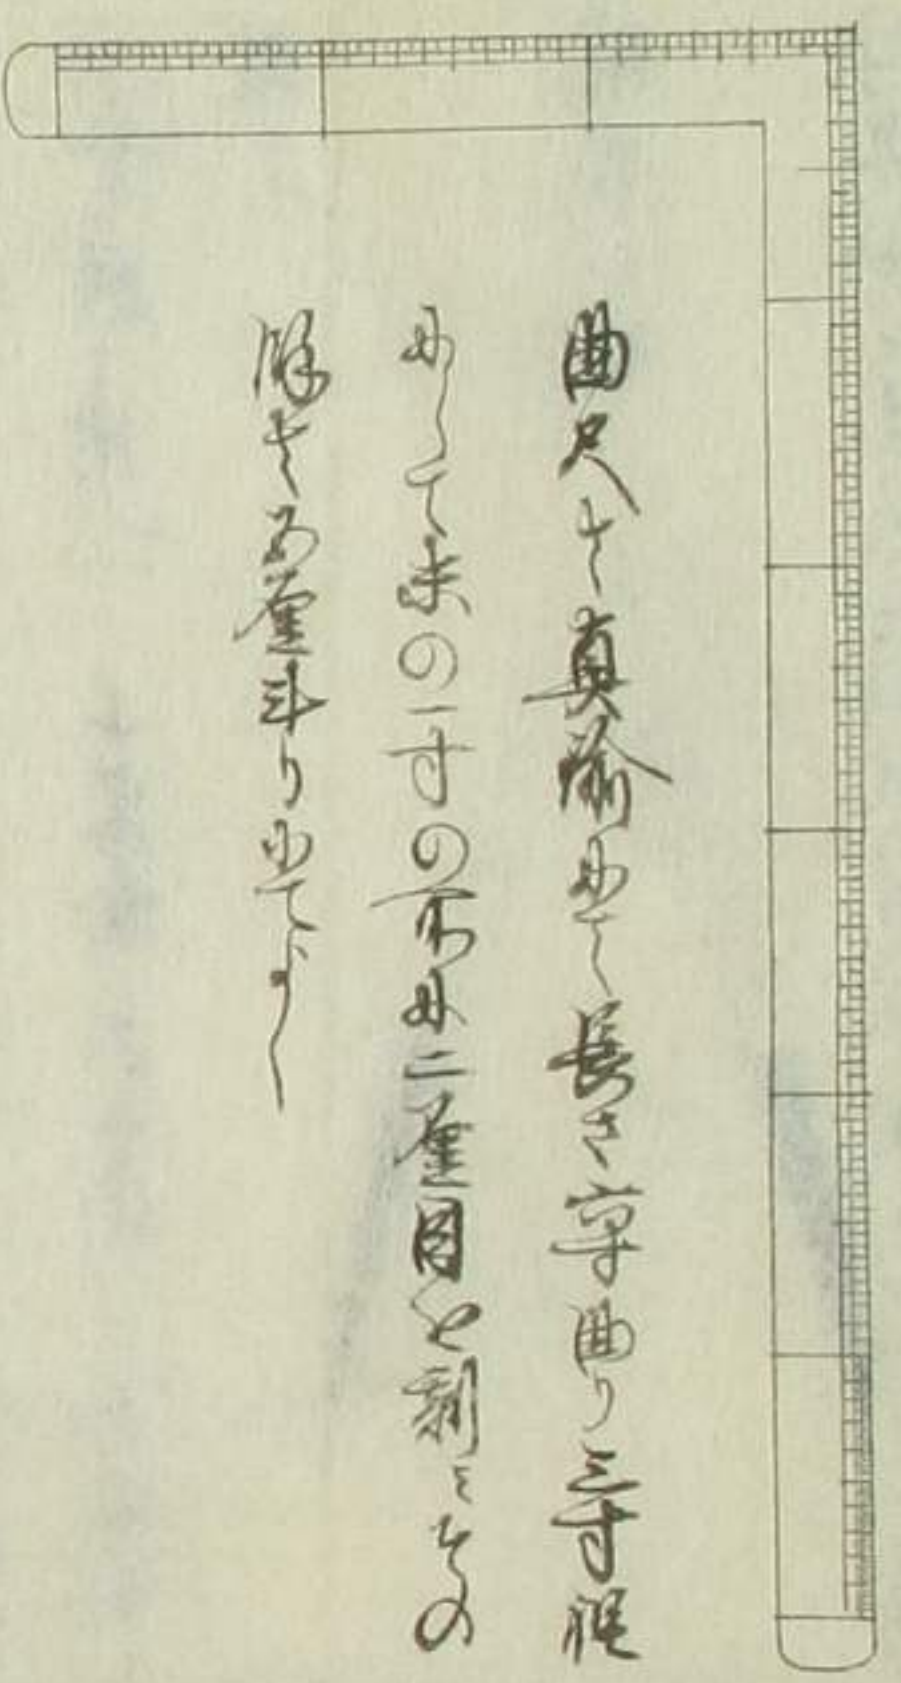 曲尺ハ真鍮にて長さ六寸曲り三寸程
にして末の一寸の所に二厘目を刻ミその
餘ハ五厘斗りにてよし